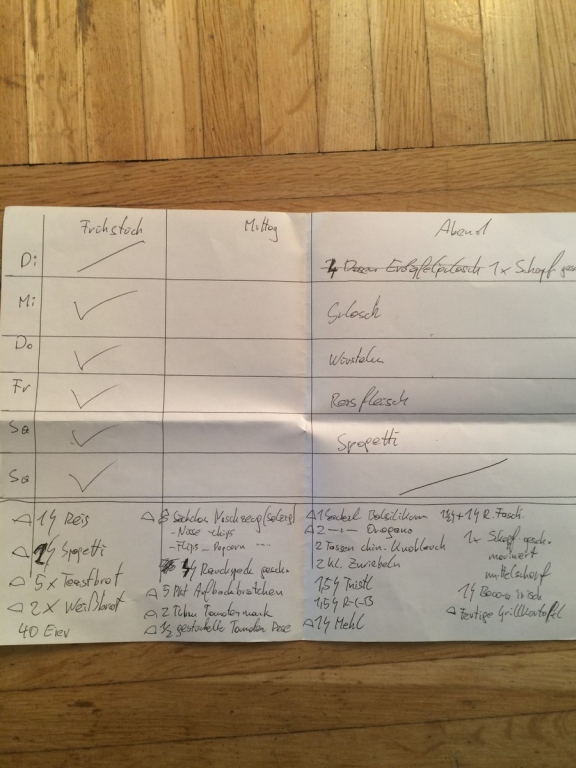 Frühstück Mittag Abend
Di 1x Schopf
Mi Gulasch
Do Würsteln
Fr Reisfleisch
Sa Spagetti
So
Reis
Spagetti
5x Toastbrot
2x Weißbrot
40 Eier
8 Säckchen Naschzeug (salzig)
- Nüsse - chips
- Flips - Popcorn
Rauchspeck gesch.
5 Pkt Aufbackbrötchen
2 Tuben Tomatenmark
1/2 gestückelte Tomaten Dose
1 Sackerl Basilikum
2 Oregano
2 Tassen chin. Knoblauch
2 kl. Zwiebeln
1,5
1,5
Mehl
R. Fasch.
1x Schopf gesch.
mariniert
mittelscharf
Bacon
Fertige Grillkartoffel